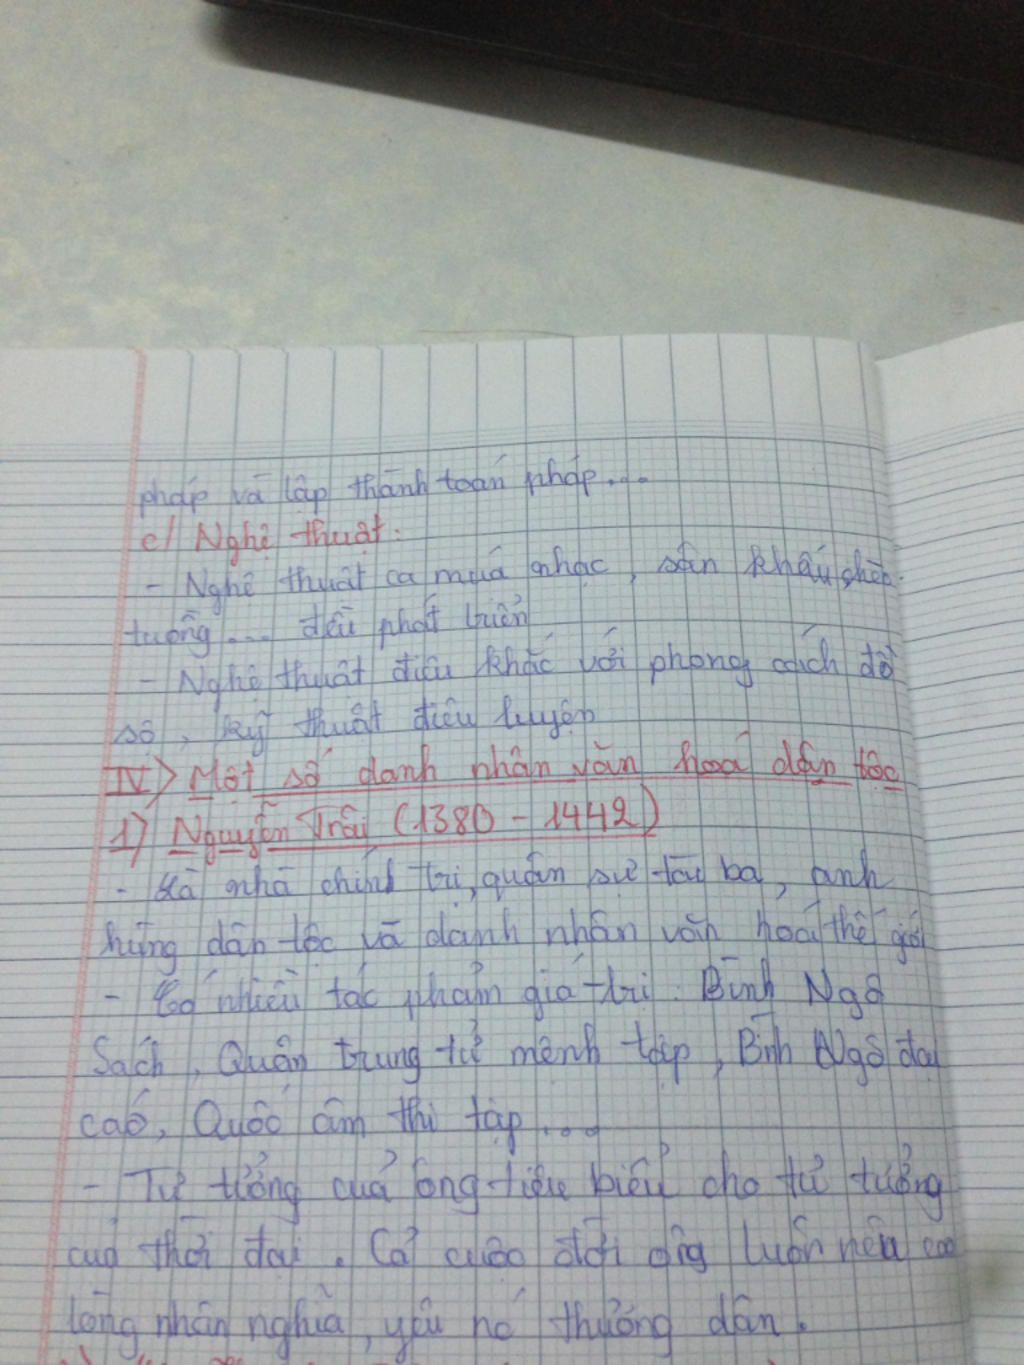 pháp và lập thành toán pháp...
c/ Nghệ thuật:
- Nghệ thuật ca múa nhạc, sân khấu chèo
tuồng... đều phát triển
- Nghệ thuật điêu khắc với phong cách đồ
sộ, kỹ thuật điêu luyện
IV> Một số danh nhân văn hoá dân tộc
1) Nguyễn Trãi (1380 - 1442)
- Là nhà chính trị, quân sự tài ba, anh
hùng dân tộc và danh nhân văn hoá thế giới
- Có nhiều tác phẩm giá trị: Bình Ngô
Sách, Quân trung từ mệnh tập, Bình Ngô đại
cáo, Quốc âm thi tập...
- Tư tưởng của ông tiêu biểu cho tư tưởng
của thời đại. Cả cuộc đời ông luôn nêu cao
lòng nhân nghĩa, yêu nc thương dân.